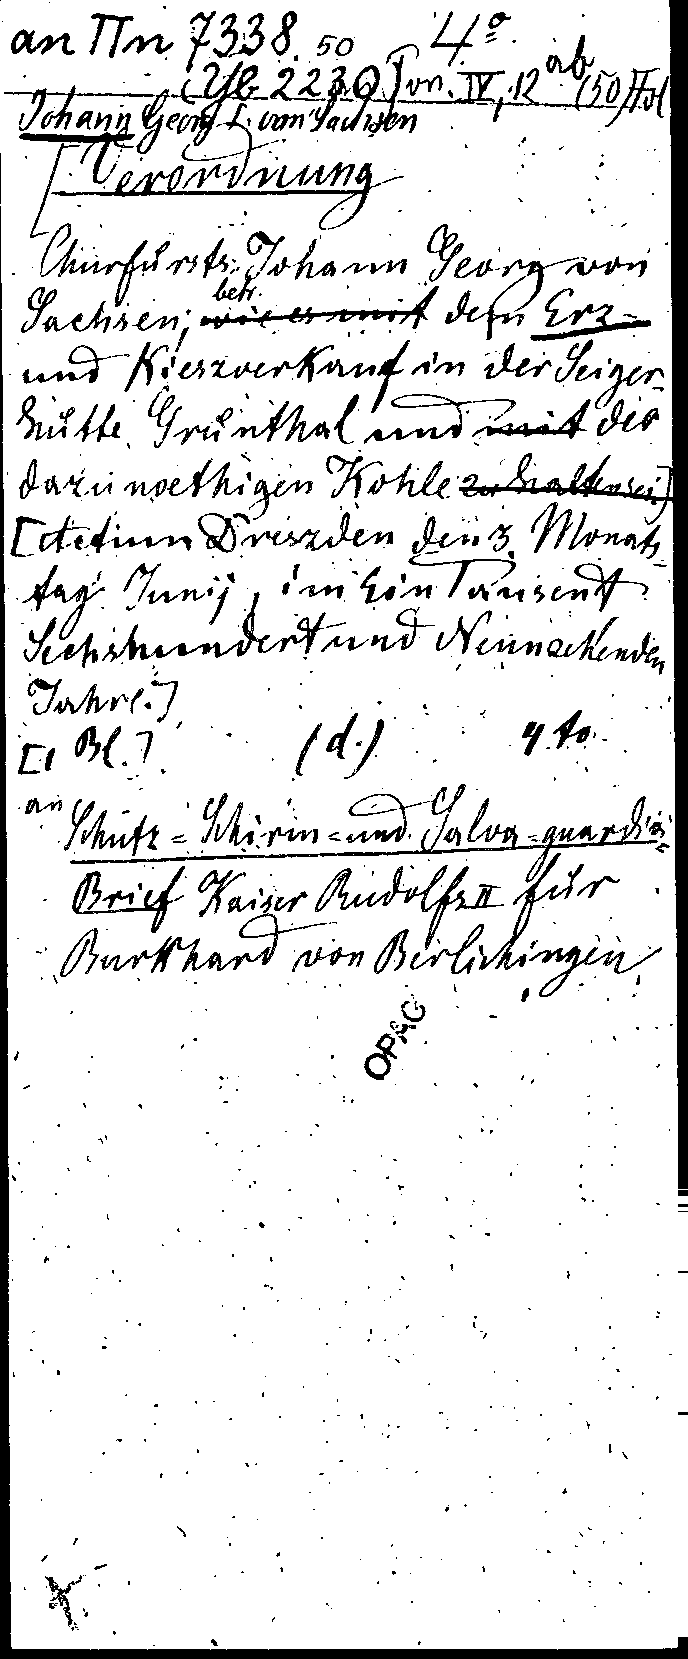 an IIn 7338 50 4º
(Yb 2230) on. IV, 12 ab (50) Fol
Johann Georg I. von Sachsen
[Verordnung
Churfürsts Johann Georg von
Sachsen, betr. wie es mit dem Erz-
und Kieszverkauf in der Seiger-
hütte Grünthal und mit der
dazu noethigen Kohle zu halten sei]
[Actum Dreszden den 3. Monats-
tag Junij, im Ein Tausent
Sechshundert und Neunzehenden
Jahre.]
[1 Bl.] (d.) 4to
an Schutz-Schirm-und Salva-guardia-
Brief Kaiser Rudolfs II für
Burkhard von Berlichingen
OPAC